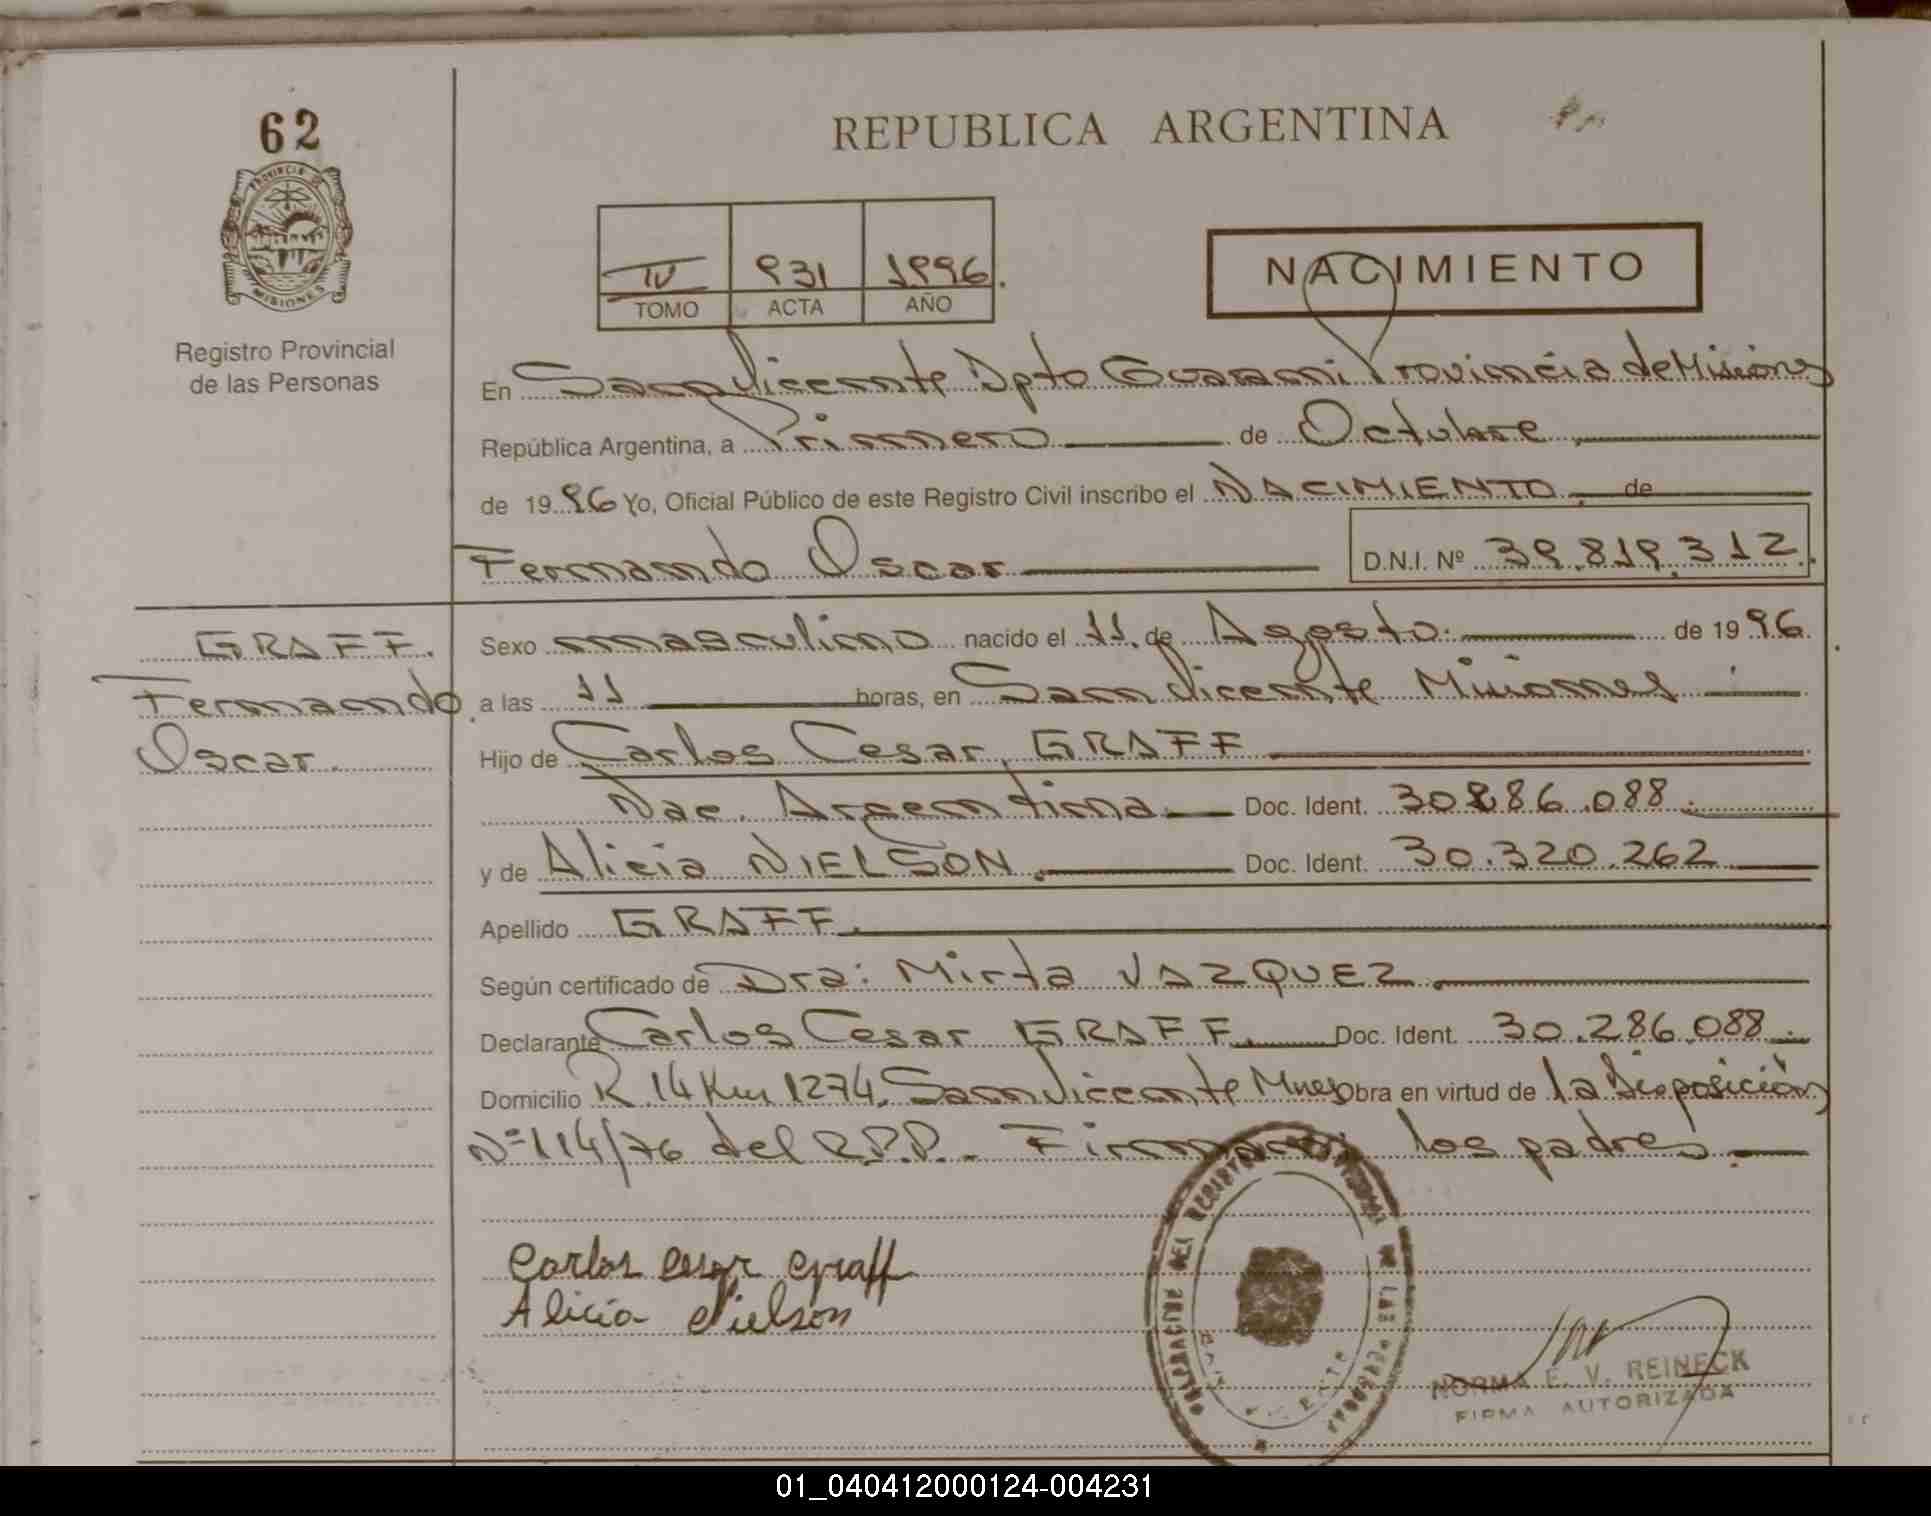 62
PROVINCIA DE
MISIONES
Registro Provincial
de las Personas
REPUBLICA ARGENTINA
IV 931 1996.
TOMO ACTA AÑO
NACIMIENTO
En San Vicente Dpto Guarani Provincia de Misiones
República Argentina, a Primero de Octubre
de 1996 Yo, Oficial Público de este Registro Civil inscribo el NACIMIENTO de
Fernando Oscar D.N.I. Nº 39.819.312.
GRAFF.
Fernando
Oscar.
Sexo masculino nacido el 11 de Agosto. de 1996.
a las 11 horas, en San Vicente Misiones
Hijo de Carlos Cesar, GRAFF
Nac. Argentina Doc. Ident. 30.286.088.
y de Alicia NIELSON. Doc. Ident. 30.320.262
Apellido GRAFF.
Según certificado de Dra: Mirta VAZQUEZ.
Declarante Carlos Cesar GRAFF. Doc. Ident. 30.286.088.
Domicilio R.14 Km 1274, San Vicente Mnes Obra en virtud de la Disposición
Nº 114/76 del R.P.P. Firman los padres.
Carlos Cesar Graff
Alicia Nielson
DELEGACION DEL REGISTRO PROVINCIAL DE LAS PERSONAS
NORMA E. V. REINECK
FIRMA AUTORIZADA
01_040412000124-004231